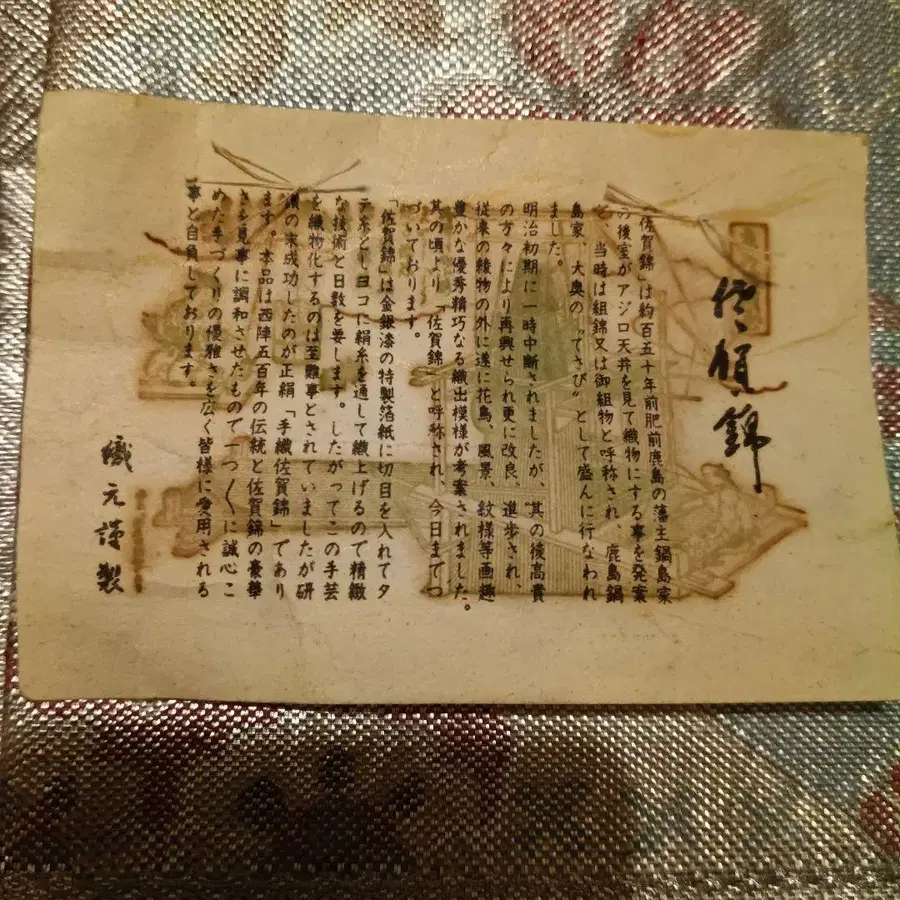 佐賀錦
「佐賀錦」は約百五十年前肥前鹿島の藩主鍋島家
の後室がアジロ天井を見て織物にする事を発案
され、当時は組錦又は御組物と呼称され、鹿島鍋
島家、大奥の〝てさび〟として盛んに行なわれ
ました。
明治初期に一時中断されましたが、其の後高貴
の方々により再興せられ更に改良、進歩され
従来の綾物の外に遂に花鳥、風景、紋様等画趣
豊かな優秀精巧なる織出模様が考案されました。
其の頃より「佐賀錦」と呼称され、今日までつ
づいております。
「佐賀錦」は金銀漆の特製箔紙に切目を入れてタ
テ糸としヨコに絹糸を通して織上げるので精緻
な技術と日数を要します。したがってこの手芸
を織物化するのは至難事とされていましたが研
鑽の末成功したのが正絹「手織佐賀錦」であり
ます。本品は西陣五百年の伝統と佐賀錦の豪華
さを見事に調和させたもので一つ〱に誠心こ
めた手づくりの優雅さを広く皆様に愛用される
事と自負しております。
織元謹製